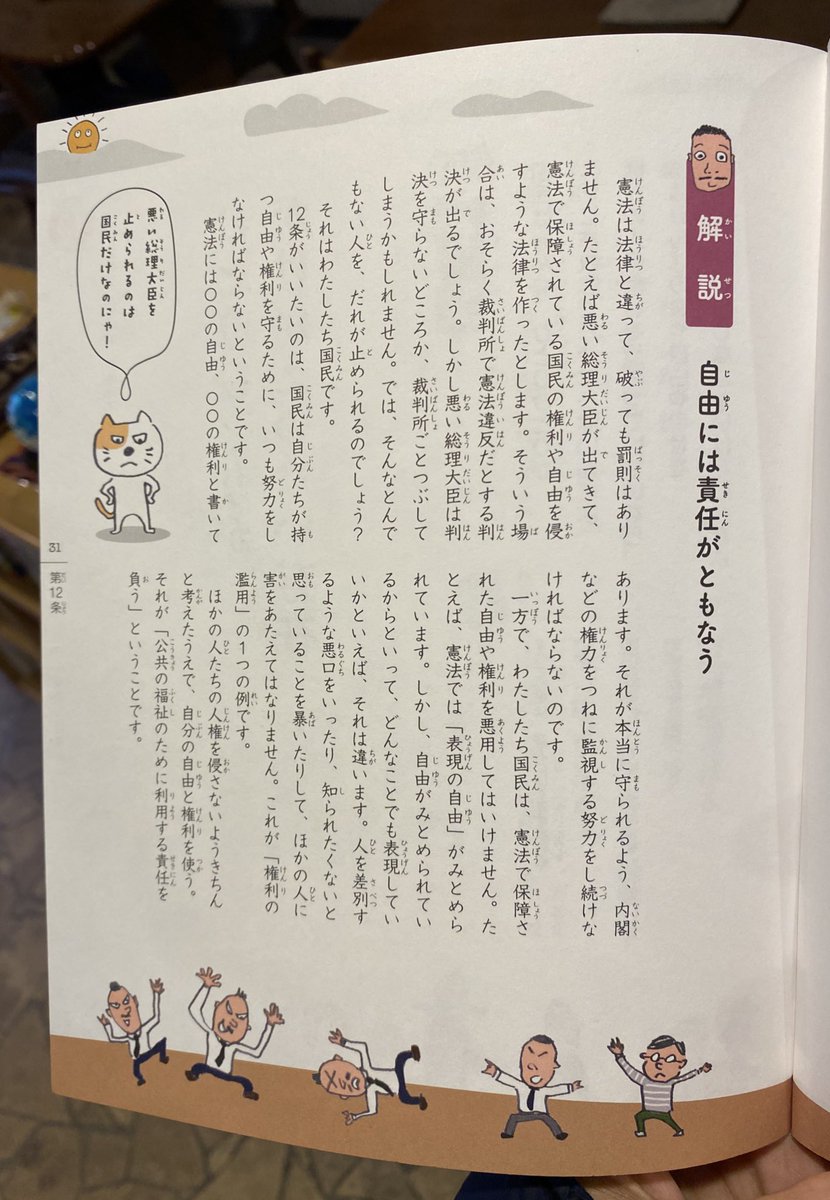 解説
自由には責任がともなう
憲法は法律と違って、破っても罰則はあり
ません。たとえば悪い総理大臣が出てきて、
憲法で保障されている国民の権利や自由を侵
すような法律を作ったとします。そういう場
合は、おそらく裁判所で憲法違反だとする判
決が出るでしょう。しかし悪い総理大臣は判
決を守らないどころか、裁判所ごとつぶして
しまうかもしれません。では、そんなとんで
もない人を、だれが止められるのでしょう？
それはわたしたち国民です。
12条がいいたいのは、国民は自分たちが持
つ自由や権利を守るために、いつも努力をし
なければならないということです。
憲法には〇〇の自由、〇〇の権利と書いて
あります。それが本当に守られるよう、内閣
などの権力をつねに監視する努力をし続けな
ければならないのです。
一方で、わたしたち国民は、憲法で保障さ
れた自由や権利を悪用してはいけません。た
とえば、憲法では「表現の自由」がみとめら
れています。しかし、自由がみとめられてい
るからといって、どんなことでも表現してい
いかといえば、それは違います。人を差別す
るような悪口をいったり、知られたくないと
思っていることを暴いたりして、ほかの人に
害をあたえてはなりません。これが「権利の
濫用」の1つの例です。
ほかの人たちの人権を侵さないようきちん
と考えたうえで、自分の自由と権利を使う。
それが「公共の福祉のために利用する責任を
負う」ということです。
悪い総理大臣を
止められるのは
国民だけなのにゃ！
31
第12条